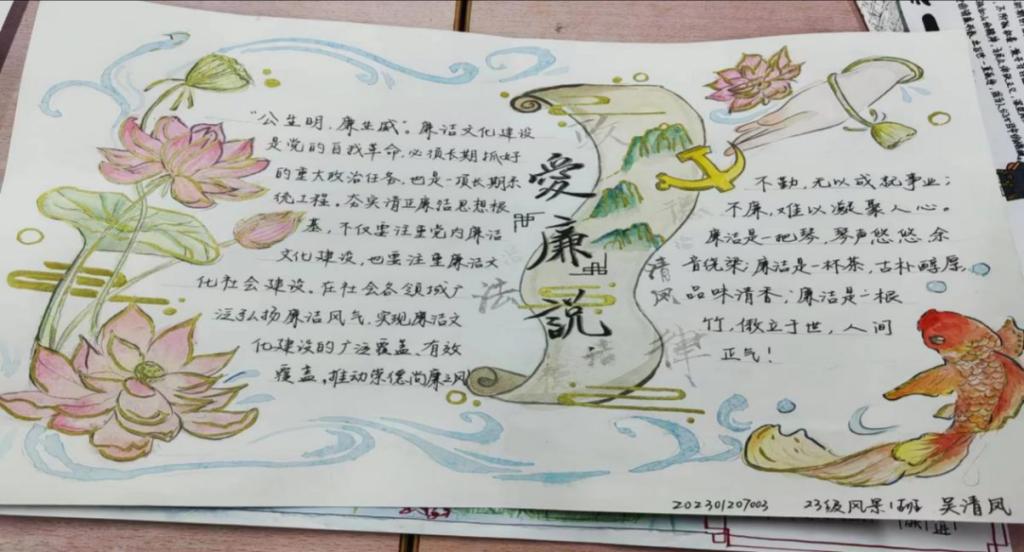 “公生明，廉生威”。廉洁文化建设
是党的自我革命，必须长期抓好
的重大政治任务，也是一项长期系
统工程，夯实清正廉洁思想根
基，不仅要注重党内廉洁
文化建设，也要注重廉洁文
化社会建设。在社会各领域广
泛弘扬廉洁风气，实现廉洁文
化建设的广泛覆盖、有效
覆盖，推动崇德尚廉之风
愛廉說
法
清风
律
不勤，无以成就事业；
不廉，难以凝聚人心。
廉洁是一把琴，琴声悠悠，余
音绕梁；廉洁是一杯茶，古朴醇厚，
品味清香；廉洁是一根
竹，傲立于世，人间
正气！
202301207003 23级风景1班 吴清风